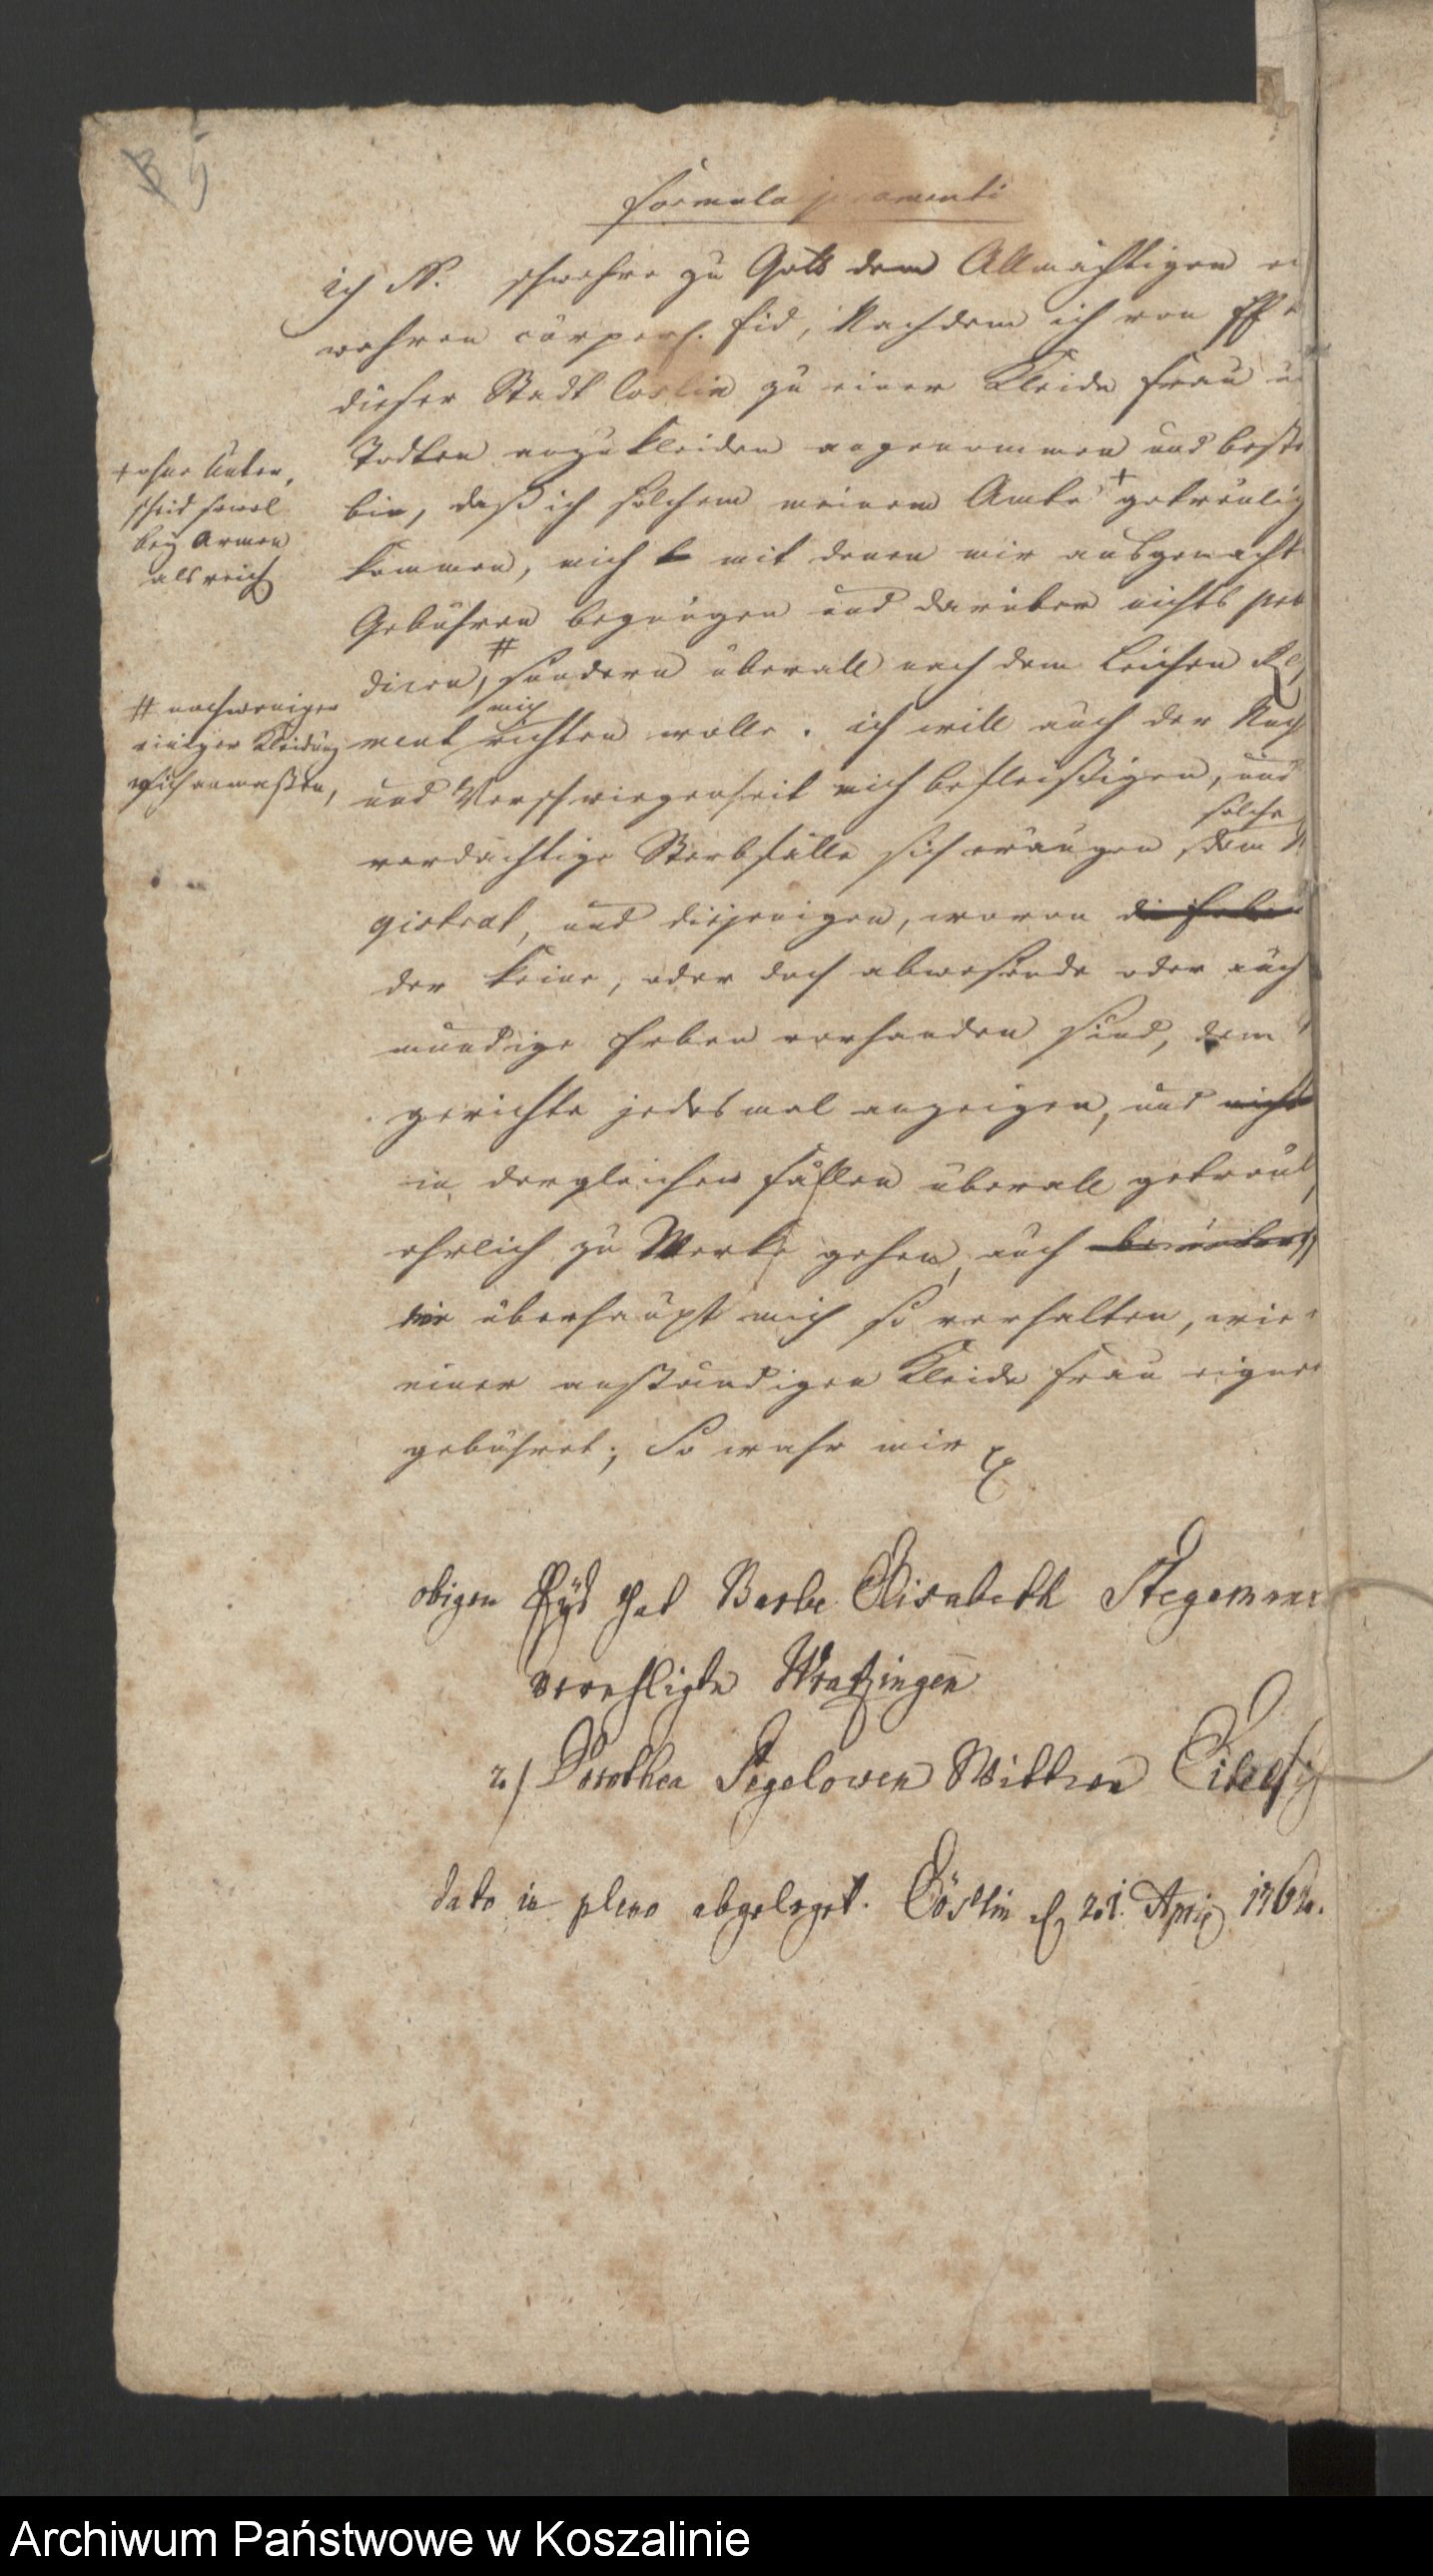 5
Formula juramenti
ich N. schwehre zu Gott dem Allmächtigen ei
wahren cörperl. Eid, Nachdem ich von
dieser Stadt Coslin zu einer Kleide Frau u
Todten anzukleiden angenommen und beste
bin, daß ich solchem meinem Amte + getreulig
kommen, mich mit denen mir ausgemacht
Gebühren begnügen und darüber nichts prae
diren, # sondern überall nach dem Leichen Regle
ment mich richten wolle. ich will auch der Nüch
und Verschwiegenheit mich befleißigen, und
verdächtige Sterbfälle sich eräugen solche dem
gistrat, und diejenigen, wovon die Erben
der keine, oder doch abwesende oder auch
mundige Erben vorhanden sind, dem
gerichte jedesmal anzeigen, und nicht
in dergleichen fällen überall getreul
ehrlich zu Werke gehen, auch
überhaupt mich so verhalten, wie
einer anständigen Kleide Frau eignet
gebühret; So wahr mir
+ ohne Unter,
scheid sowol
bey Armen
als reich
# noch weniger
einiger Kleidung
mich anmaßen,
obigen Eyd hat Barbe Elisabeth Stegemann
verehligte Wratzingen
2./ Dorothea Segelowen Wittwe
dato in pleno abgeleget. Cöslin d 21. April 1762.
Archiwum Państwowe w Koszalinie